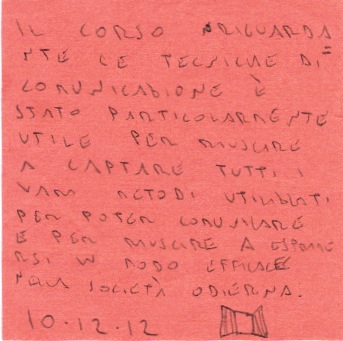 IL CORSO RIGUARDA
NTE LE TECNICHE DI
COMUNICAZIONE È
STATO PARTICOLARMENTE
UTILE PER RIUSCIRE
A CAPTARE TUTTI I
VARI METODI UTILIZZATI
PER POTER COMUNICARE
E PER RIUSCIRE A ESPRIME
RSI IN MODO EFFICACE
NELLA SOCIETÀ ODIERNA.
10.12.12